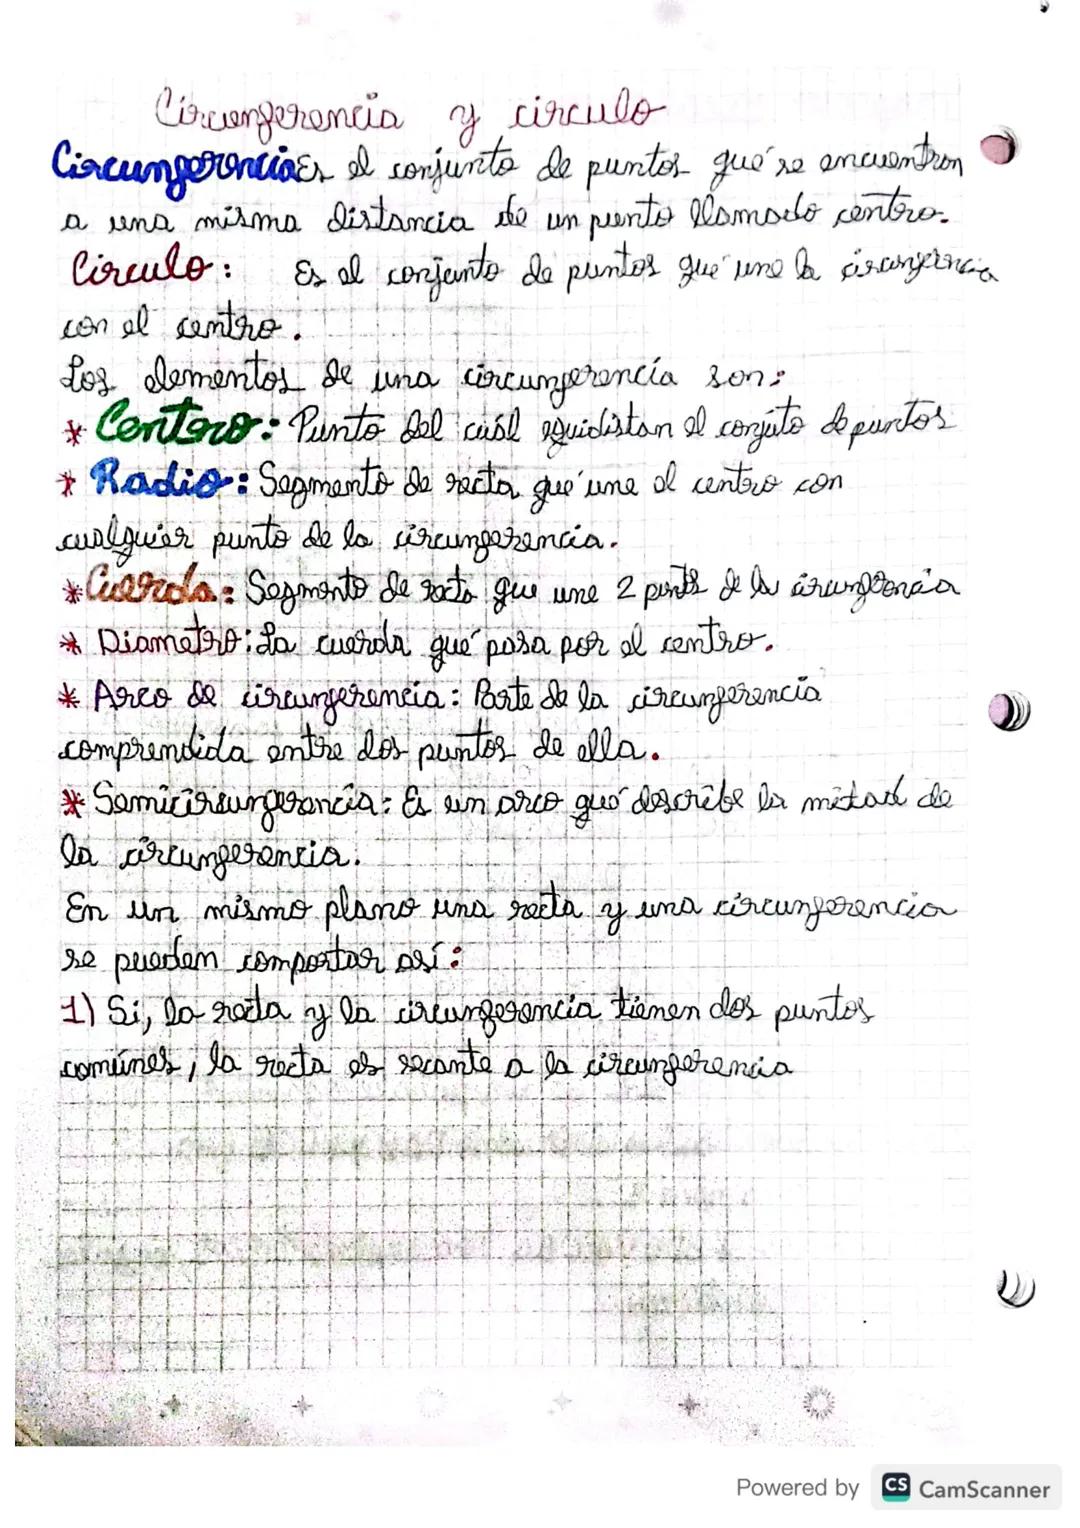 Circunferencia y circulo
Circunferencia Es el conjunto de puntos qué se encuentran
a una misma distancia de un punto llamado centro.
Circulo: Es el conjunto de puntos qué une la circunferencia
con el centro.
Los elementos de una circumferencía son:
* Centro: Punto del cuál equidistan el conjúto de puntos
* Radio: Segmento de recta qué une el centro con
cualquier punto de la circunferencia.
* Cuerda: Segmento de recta que une 2 punts de la circunferencia
* Diametro: La cuerda qué pasa por el centro.
* Arco de circunferencia: Parte de la circunferencia
comprendida entre dos puntos de ella.
* Semicircunferencia: Es un arco qué describe la mitad de
la circunferencia.
En un mismo plano una recta y una circunferencia
se pueden comportar así:
1) Si, la recta y la circunferencia tienen dos puntos
comúnes, la recta es secante a la circunferencia
Powered by CS CamScanner